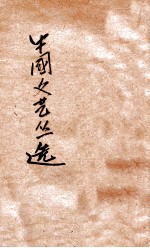 中國文艺丛选